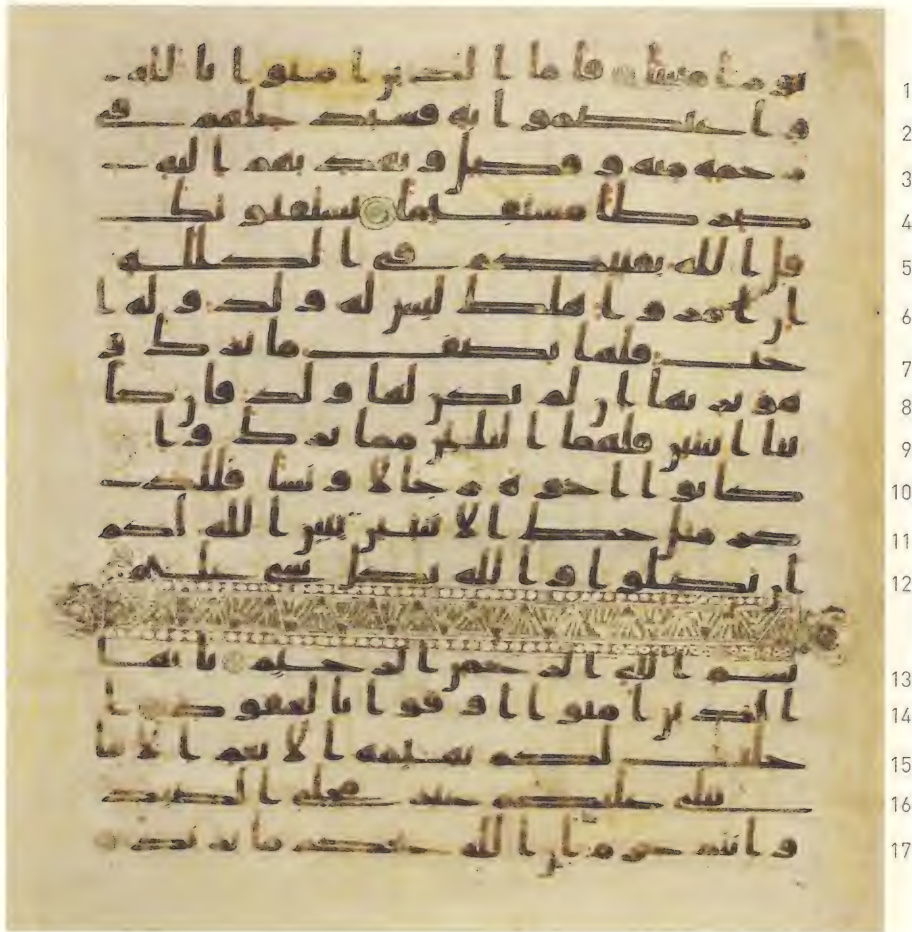 نورا مبينا فاما الذين امنوا بالله 1
واعتصموا به فسيدخلهم في 2
رحمة منه وفضل ويهديهم اليه 3
صرطا مستقيما يستفتونك 4
قل الله يفتيكم في الكللة 5
ان امروا هلك ليس له ولد وله ا 6
خت فلها نصف ما ترك و 7
هو يرثها ان لم يكن لها ولد فان كا 8
نتا اثنتين فلهما الثلثن مما ترك وان 9
كانوا اخوة رجالا ونسا فللذ 10
كر مثل حظ الانثيين يبين الله لكم 11
ان تضلوا والله بكل شي عليم 12
بسم الله الرحمن الرحيم يايها 13
الذين امنوا اوفوا بالعقود ا 14
حلت لكم بهيمة الانعم الا ما 15
يتلى عليكم غير محلي الصيد 16
وانتم حرم ان الله يحكم ما يريد 17